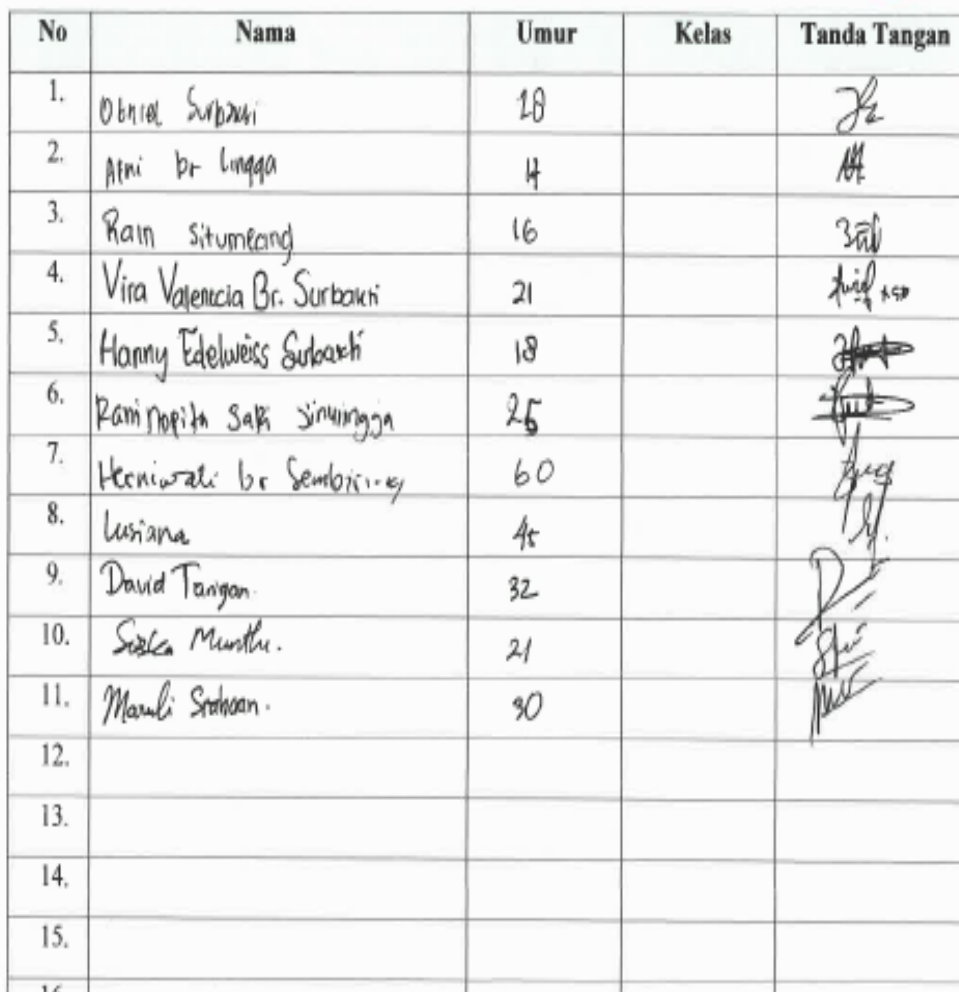 No Nama Umur Kelas Tanda Tangan
1. Otniel Surbakti 18
2. Atni br Lingga 14
3. Rain Situmeang 16
4. Vira Valencia Br. Surbakti 21
5. Hanny Edelweiss Surbakti 18
6. Rani Nopita Sari Sinulingga 25
7. Herniwati br Sembiring 60
8. Lusiana 45
9. David Tarigan. 32
10. Siska Munthe. 21
11. Maruli 30
12.
13.
14.
15.
16.